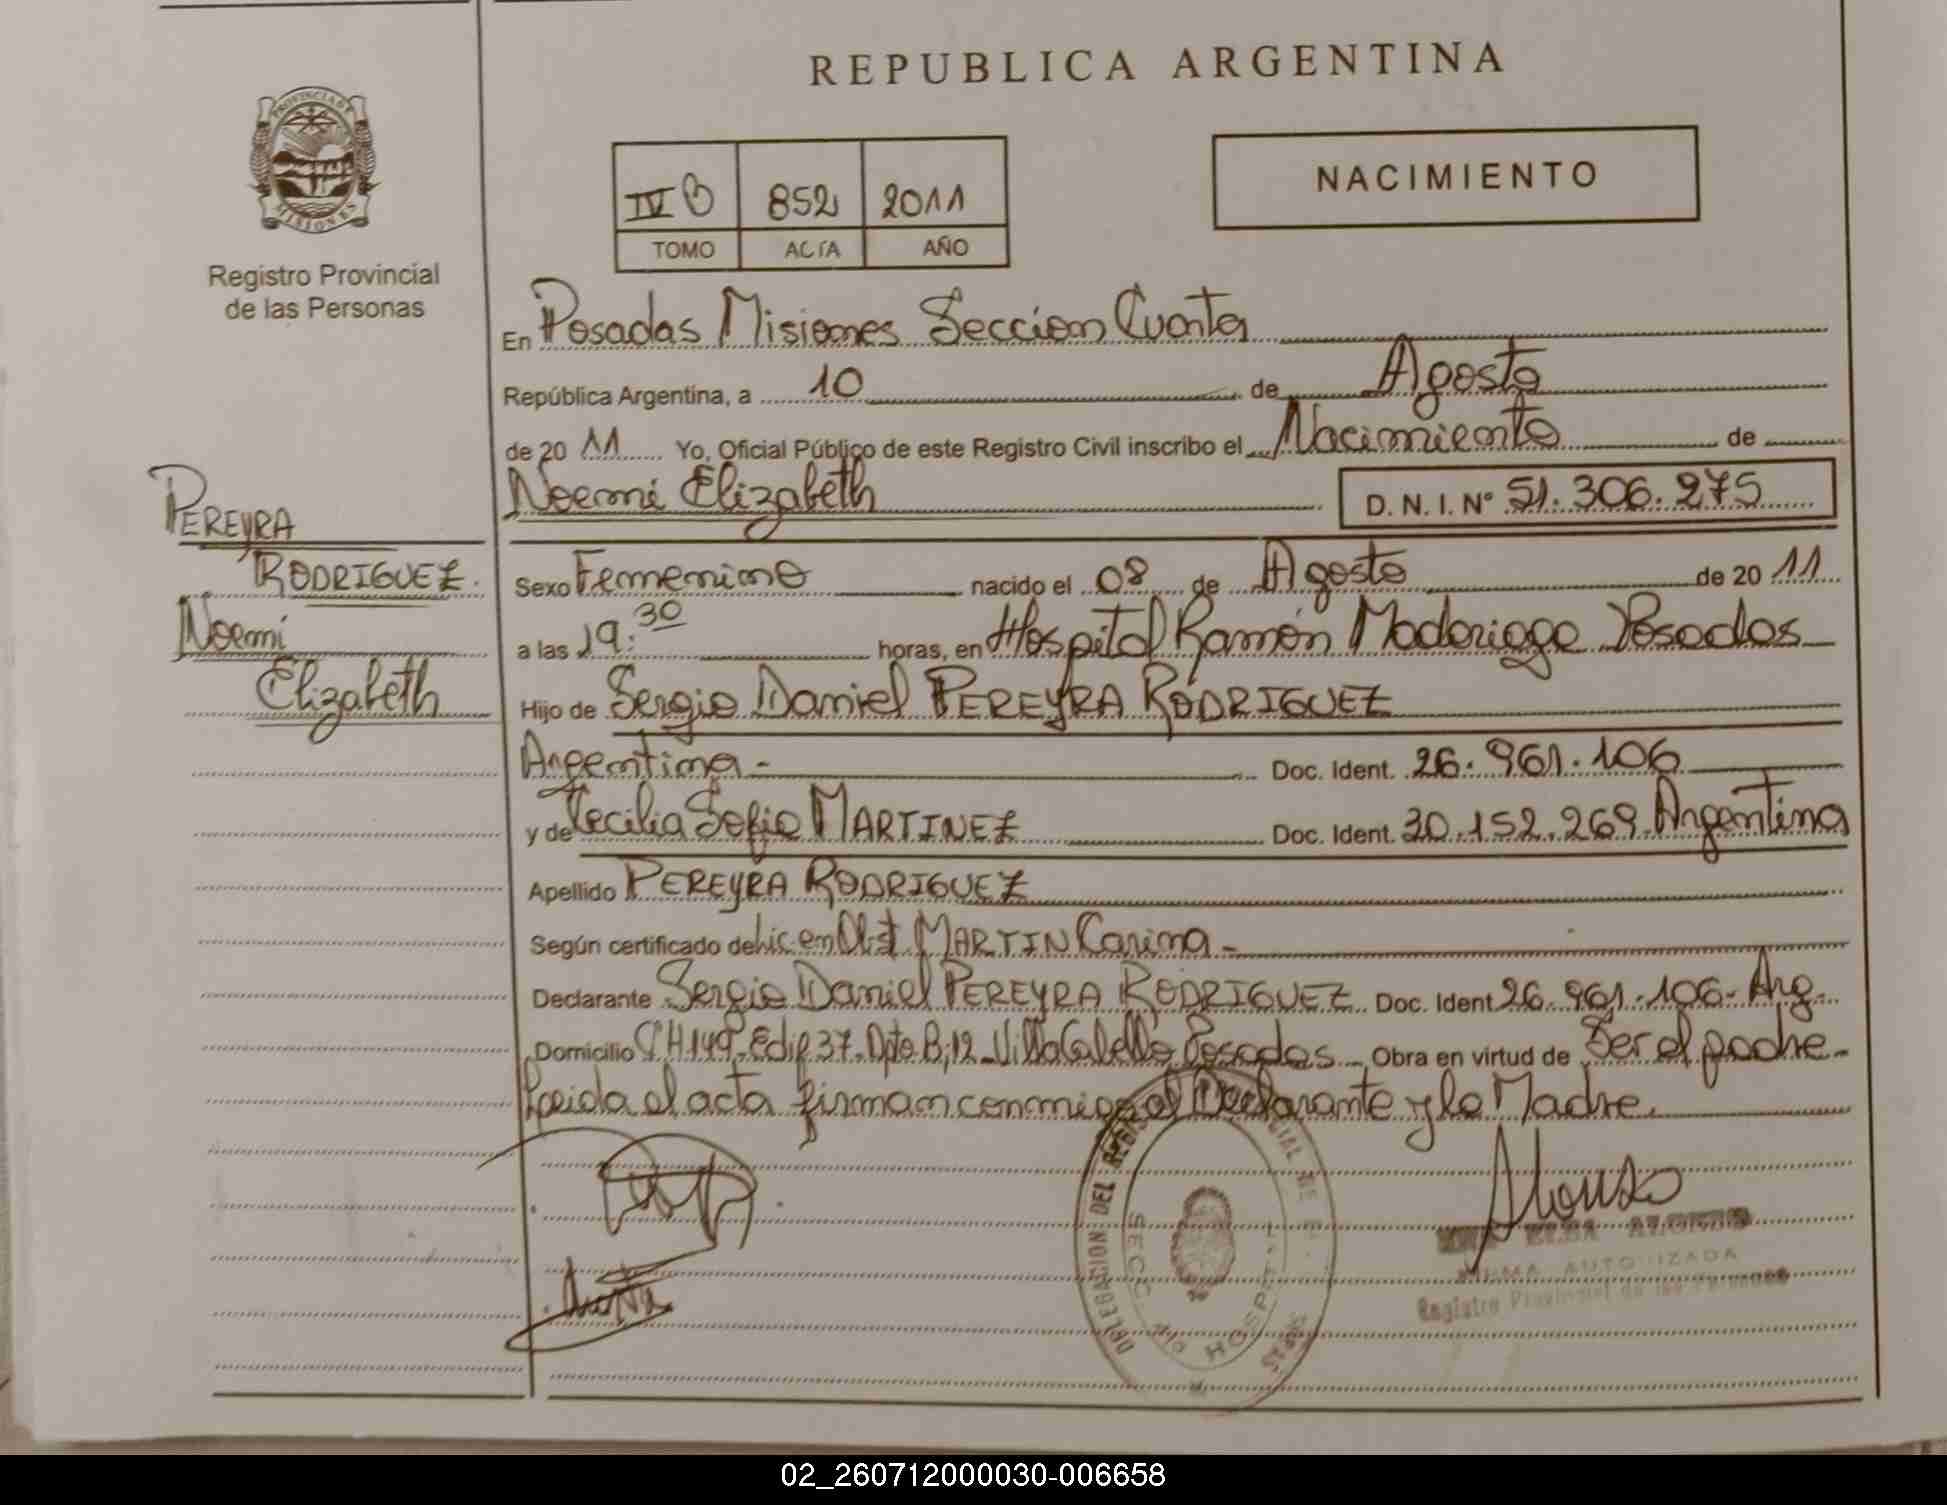 REPUBLICA ARGENTINA
PROVINCIA DE
MISIONES
Registro Provincial
de las Personas
IV B 852 2011
TOMO ACTA AÑO
NACIMIENTO
En Posadas Misiones Seccion Cuarta
República Argentina, a 10 de Agosto
de 20 11 Yo, Oficial Público de este Registro Civil inscribo el Nacimiento de
Noemi Elizabeth D.N.I. Nº 51.306.275
PEREYRA
RODRIGUEZ.
Noemi
Elizabeth
Sexo Femenino nacido el 08 de Agosto de 20 11
a las 19:30 horas, en Hospital Ramón Madariaga Posadas
Hijo de Sergio Daniel PEREYRA RODRIGUEZ
Argentina - Doc. Ident. 26.961.106
y de Cecilia Sofia MARTINEZ Doc. Ident. 30.152.269 Argentina
Apellido PEREYRA RODRIGUEZ
Según certificado de Lic. en Obst. MARTIN Carina -
Declarante Sergio Daniel PEREYRA RODRIGUEZ Doc. Ident 26.961.106 - Arg.
Domicilio CH 149 - Edif 37 - Dpto B; 12 - Villa Cabello, Posadas Obra en virtud de Ser el padre -
Leida el acta firman conmigo el Declarante y la Madre.
DELEGACION DEL
SECC. 4ta HOSPITAL
Alonso
ELBA ALONSO
FIRMA AUTORIZADA
Registro Provincial de las Personas
02_260712000030-006658